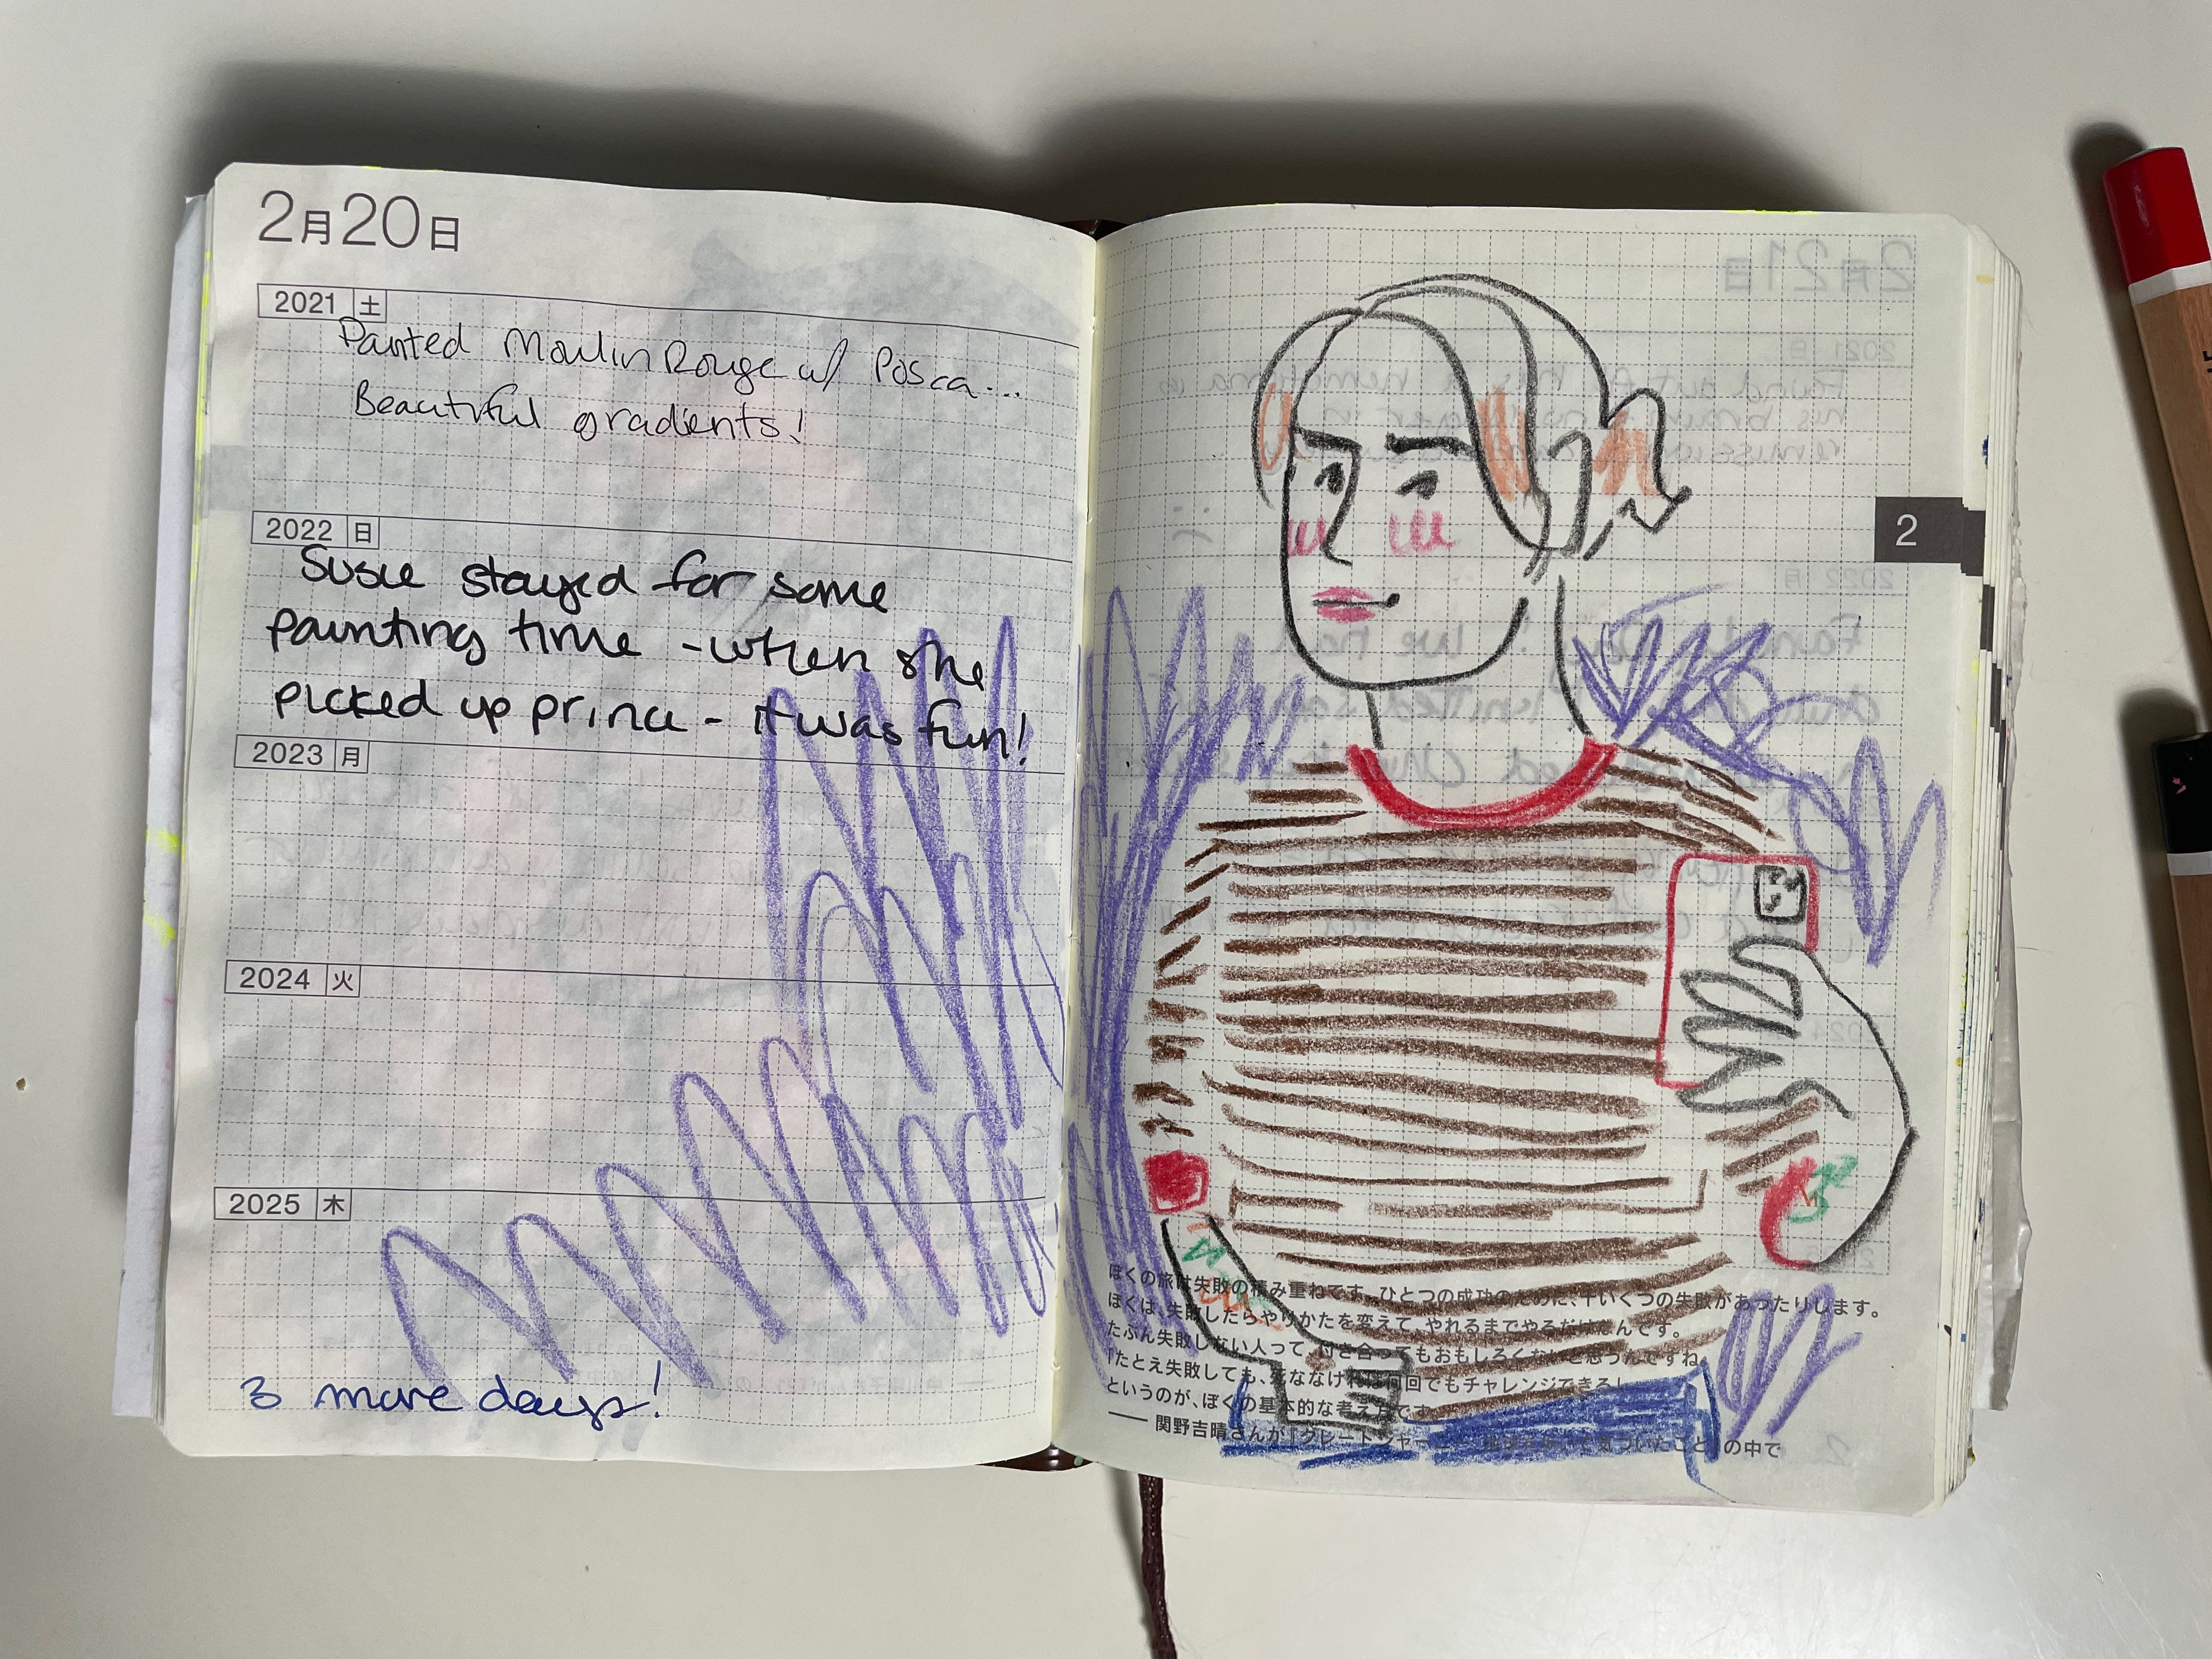 2月20日
2021 土
Painted Moulin Rouge w/ Posca...
Beautiful gradients!
2022 日
Susie stayed for some
painting time - when she
picked up prince - it was fun!
2023 月
2024 火
2025 木
3 more days!
2
ぼくの旅は失敗の積み重ねです。ひとつの成功のために、十いくつの失敗があったりします。
ぼくは、失敗したらやりかたを変えて、やれるまでやるだけなんです。
たぶん失敗しない人って、付き合ってもおもしろくないと思うんですね。
「たとえ失敗しても、死ななければ何回でもチャレンジできる」
というのが、ぼくの基本的な考え方です。
—— 関野吉晴さんが『グレートジャーニー 地球を這って気づいたこと』の中で